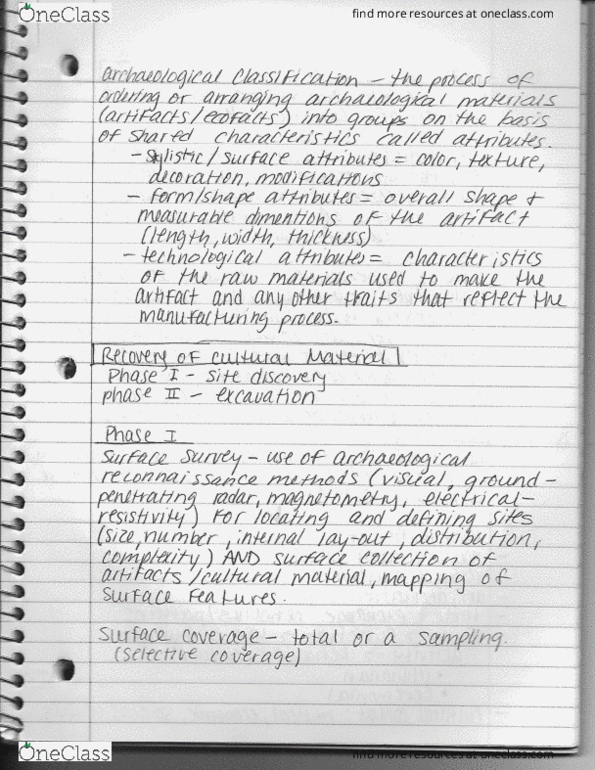 OneClass
find more resources at oneclass.com
archaeological classification - the process of
ordering or arranging archaeological materials
(artifacts/ecofacts) into groups on the basis
of shared characteristics called attributes.
- stylistic/surface attributes = color, texture,
decoration, modifications
- form/shape attributes = overall shape +
measurable dimentions of the artifact
(length, width, thickness)
- technological attributes = characteristics
of the raw materials used to make the
artifact and any other traits that reflect the
manufacturing process.
Recovery of cultural Material
Phase I - site discovery
phase II - excavation
Phase I
Surface survey - use of archaeological
reconnaissance methods (visual, ground-
penetrating radar, magnetometry, electrical-
resistivity) for locating and defining sites
(size, number, internal lay-out, distribution,
complexity) AND surface collection of
artifacts/cultural material, mapping of
surface features.
Surface coverage - total or a sampling.
(selective coverage)
OneClass
find more resources at oneclass.com